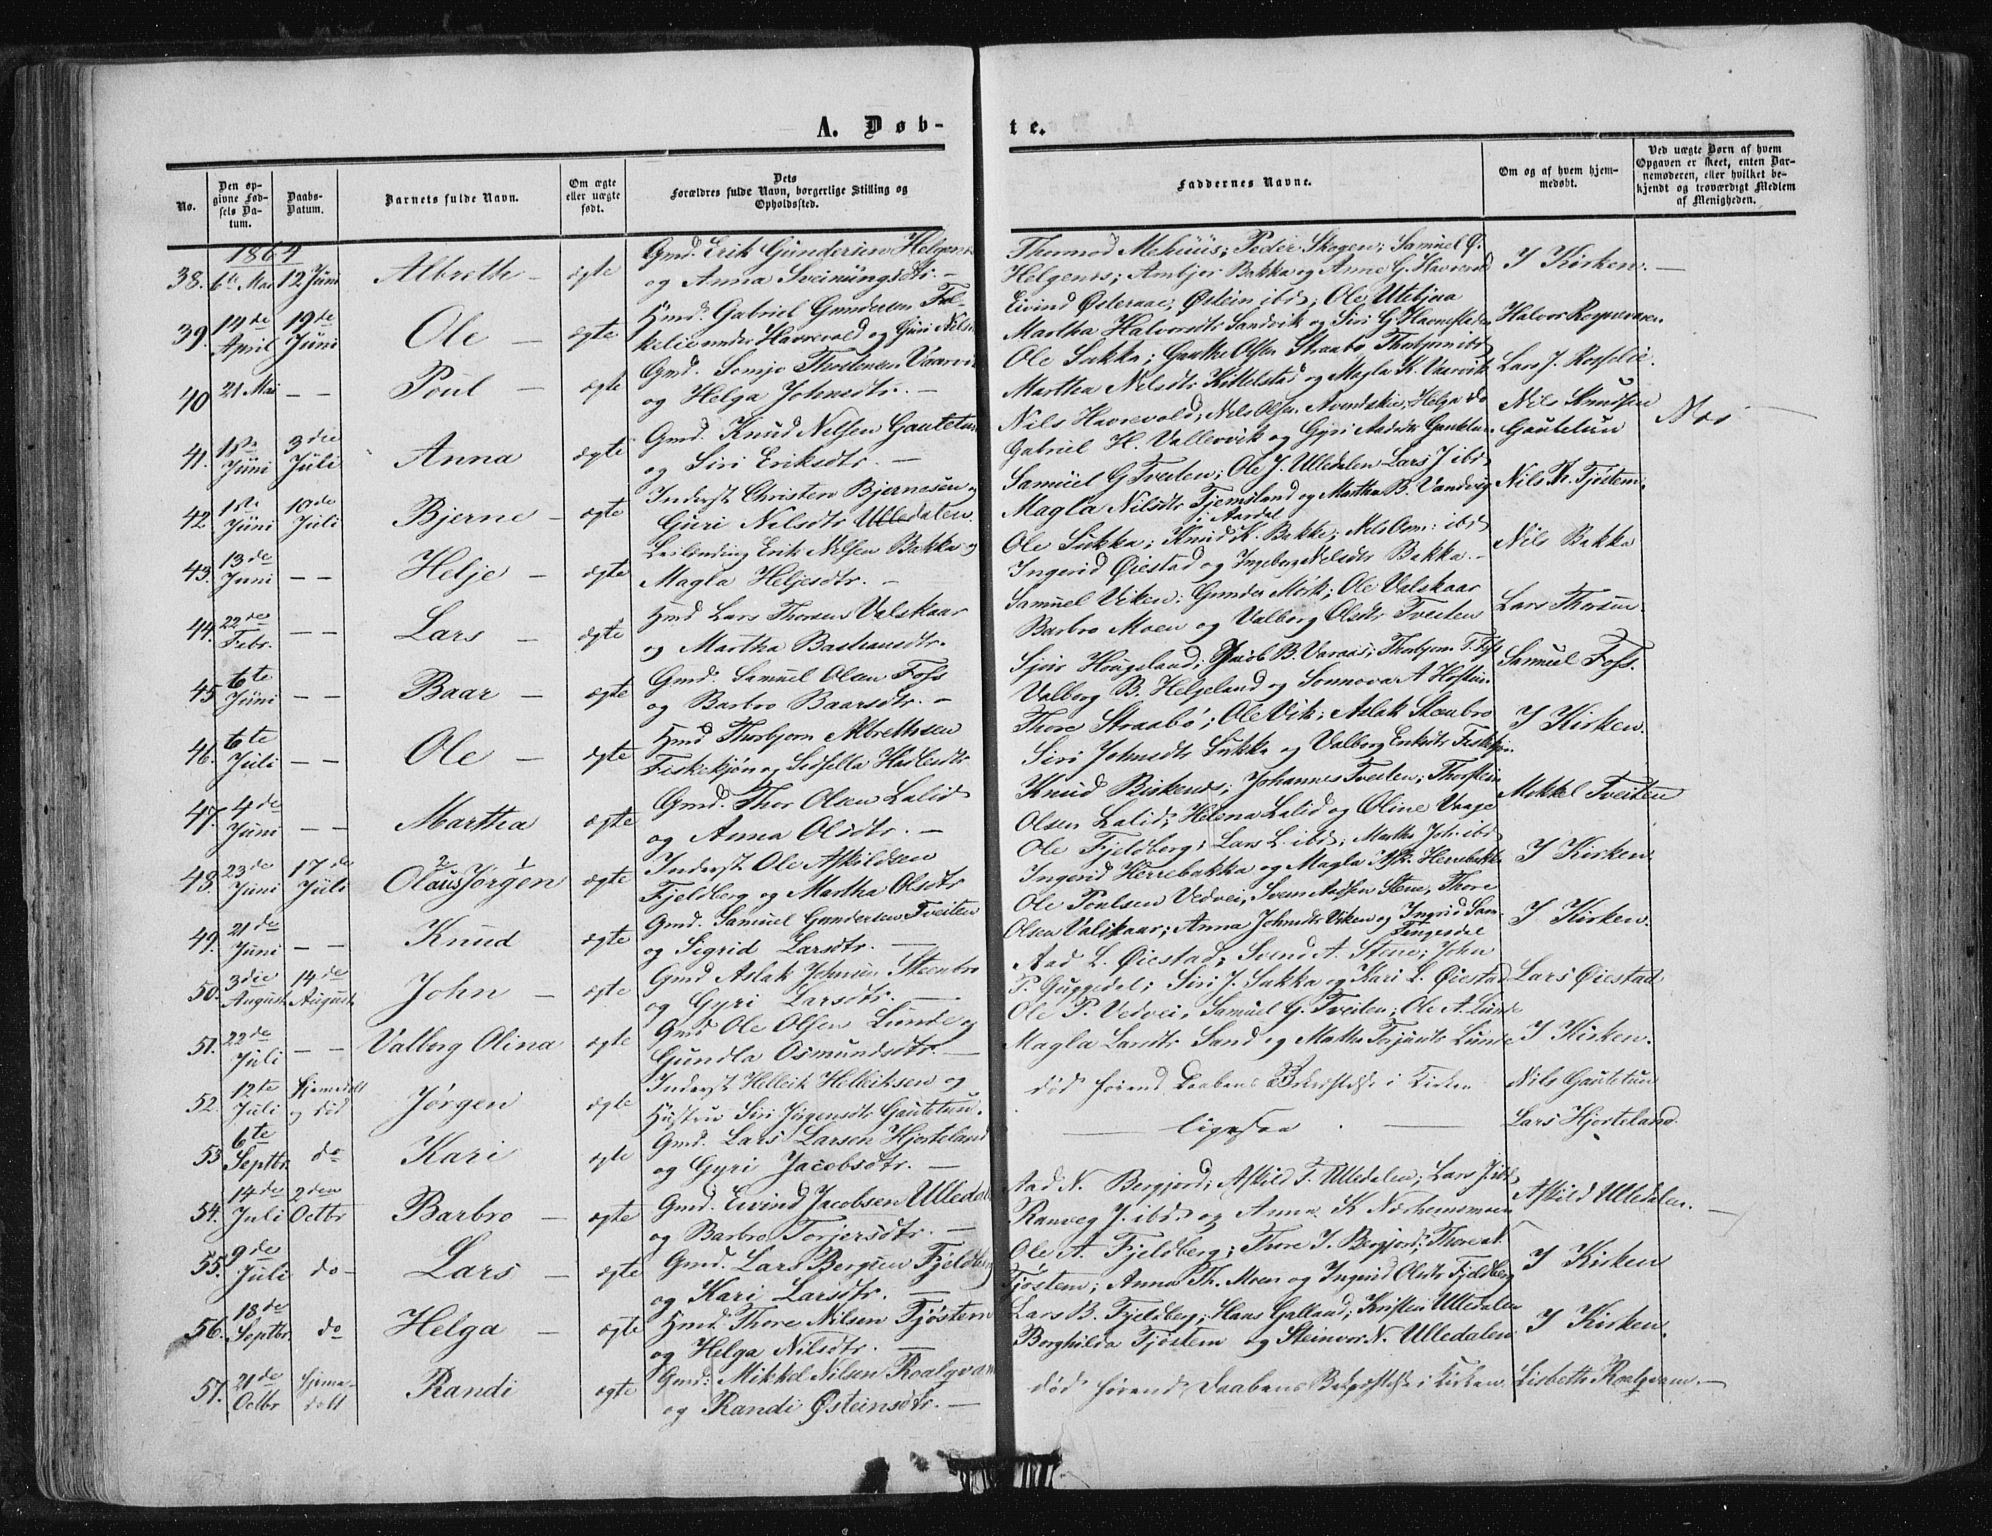 A. Døb-
te.
No.
Den opgivne Fødsels Datum.
Daabs-Datum.
Barnets fulde Navn.
Om ægte eller uægte født.
Dets Forældres fulde Navn, borgerlige Stilling og Opholdssted.
Faddernes Navne.
Om og af hvem hjemmedøbt.
Ved uægte Børn af hvem Opgaven er skeet, enten Barnemoderen, eller hvilket bekjendt og troværdigt Medlem af Menigheden.
1864
38. 6te Mai 12 Juni Albreth – ægte Gmd. Erik Gundersen
og Anna Sveinungsdtr. –
Thormod Mehuus; Peder Skogen; Samuel G.
Helgenes; Ambjør Bakka og Anne G. Havrevold
I Kirken. –
39. 14de April 19de Juni Ole – ægte Hmd. Gabriel Gundersen Fol-
kelie under Havrevold og Guri Nilsd
Eivind Østeraae; Østein ibd; Ole
Martha Halvorsdtr Sandvik og Siri G.
Halvor
40 21 Mai – – Poul – ægte Gmd. Thorstensen
og Helga Johnsdtr. –
Ole Sukka; Gauthe Olsen Straabø
Martha Nilsdtr Kittelstad og Magla K.
Lars J.
41. 1ste Juni 3die Juli Anna ægte Gmd. Knud Nilsen Gautetun
og Siri Eriksdtr. –
Nils Havrevold; Nels Olsen Helga do
Gabriel H. Vallevik og Gyri
Nils Knudsen
Gautetun
42. 1ste Juni 10de Juli Bjerne – ægte Inderst Christen Bjernesen og
Guri Nilsdtr Ulledalen.
Samuel G Tveiten; Ole J. Ulledalen Lars J ibd
Magla Nilsdtr Tjemsland og Martha B. Vandvig
Nils Th. Tjøstem.
43. 13de Juni – – Helje – ægte Leilending Erik Nilsen Bakka og
Magla Heljesdtr. –
i Aardal
Ole Sukka; Knud K. Bakke; Nels Osm: ibd
Ingerid Øiestad og Ingeborg Nelsdtr Bakka –
Nils Bakka
44. 22de Febr. – – Lars – ægte Hmd Lars Thorsen Valskaar
og Martha Bastiansdtr.
Samuel Viken; Gunder Mork; Ole Valskaar
Barbro Moen og Valborg Olsdtr Tveiten
Lars Thorsen.
45 6te Juni – – Baar – ægte Gmd. Samuel Olsen Foss
og Barbro Baarsdtr. –
Sjur Hougeland; Jacob B. Thorbjørn T. Foss
Valborg B. Helgeland og Sonnova A
Samuel Foss.
46. 6te Juli – – Ole – ægte Hmd Thorbjørn Albrethsen
Fiskekjøn og Sidsella
Thore Straabø; Ole Vik; Aslak Steenbro
Siri Johnsdtr Sukka og Valborg Eriksdtr
I Kirken.
47. 4de Juni – – Martha ægte Gmd. Thor Olsen Lalid
og Anna Olsdtr. –
Knud Birkenes; Johannes Tveiten; Thorstein
Olsen Lalid; Helena Lalid og Oline Vaage
Mikkel Tveiten
48. 23de Juni 17de Juli Olaus Jørgen ægte Inderst Ole Askildsen
Fjeldberg og Martha Olsdtr
Ole Fjeldberg; Lars L. ibd; Martha Joh: ibd
Ingerid Herrebakka og Magla Ask: Herrebakka
I Kirken.
49. 21de Juni – – Knud ægte Gmd. Samuel Gundersen Tveiten
og Sigrid Larsdtr. –
Ole Poulsen Vedvei; Svend Aadsen Stene; Thore
Olsen Valskaar; Anna Johnsdtr Viken og Ingrid Sam.
I Kirken.
50. 3die August 14de August John – ægte Gmd Aslak Johnsen Steenbro
og Gyri Larsdtr. –
Aad L. Øiestad; Svend A. Stene; John
P. Guggedal; Siri J. Sukka og Kari L. Øiestad
Lars Øiestad
51. 22de Juli – – Valborg Olina ægte Gmd Ole Olsen Lunde og
Gundla Osmundsdtr. –
Ole P. Vedvei; Samuel G. Tveiten; Ole A. Lunde
Magla Larsdtr Sand og Martha Lunde
I Kirken.
52. 12te Juli hjemdøbt og død Jørgen ægte Inderst Helleik Helleiksen og
Hustru Siri Jørgensdtr Gautetun.
død førend Daabens Bekræftelse i Kirken
Nils Gautetun
53 6te Septbr. do Kari ægte Gmd. Lars Larsen Hjorteland
og Gyri Jacobsdtr. –
– ligesaa –
Lars Hjorteland.
54. 14de Juli 2den Octbr Barbro – ægte Gmd. Eivind Jacobsen Ulledal
og Barbro Torjersdtr. –
Aad N. Bergjord; Askild T. Ulledalen; Lars J ibd
Ranveg J. ibd. og Anna K
Askild Ulledalen. –
55. 9de Juli do – Lars – ægte Gmd. Lars Bergsen Fjeldberg
og Kari Larsdtr. –
Ole A. Fjeldberg; Thore J. Bergjord; Thore N.
Tjøstem; Anna Th. Moen og Ingerid Olsdtr Fjeldberg
I Kirken
56. 18de Septbr. do Helga – ægte Hmd. Thore Nilsen Tjøstem
og Helga Nilsdtr. –
Lars B. Fjeldberg; Hans Galland; Kristen Ulledalen
Borghilda Tjøstem og Steinvor N. Ulledalen
I Kirken.
57. 21de Octbr hjemmedøbt Randi ægte Gmd: Mikkel Nilsen Roalqvam
og Randi Østeinsdtr. –
død førend Daabens Bekræftelse i Kirken
Lisbeth Roalqvam. –